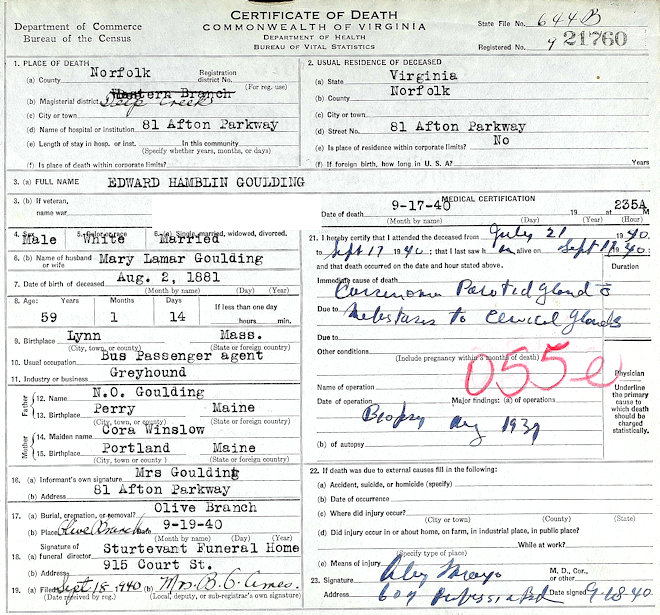 CERTIFICATE OF DEATH
Department of Commerce
Bureau of the Census
COMMONWEALTH OF VIRGINIA
DEPARTMENT OF HEALTH
BUREAU OF VITAL STATISTICS
State File No. 644B
Registered No. 9 21760
1. PLACE OF DEATH
(a) County Norfolk Registration district No. (For reg. use)
(b) Magisterial district Western Branch Deep Creek
(c) City or town
(d) Name of hospital or institution 81 Afton Parkway
(e) Length of stay in hosp. or inst. In this community
(Specify whether years, months, or days)
(f) Is place of death within corporate limits?
2. USUAL RESIDENCE OF DECEASED
(a) State Virginia
(b) County Norfolk
(c) City or town
(d) Street No. 81 Afton Parkway
(e) Is place of residence within corporate limits? No
(f) If foreign birth, how long in U. S. A.? Years
3. (a) FULL NAME EDWARD HAMBLIN GOULDING
3. (b) If veteran,
name war
4. Sex Male 5. Color or race White 6. (a) Single, married, widowed, divorced. Married
6. (b) Name of husband or wife Mary Lamar Goulding
7. Date of birth of deceased Aug. 2, 1881
(Month by name) (Day) (Year)
8. Age: Years 59 Months 1 Days 14 If less than one day
hours min.
9. Birthplace Lynn Mass.
(City, town, or county) (State or foreign country)
10. Usual occupation Bus Passenger agent
11. Industry or business Greyhound
Father
12. Name N.O. Goulding
13. Birthplace Perry Maine
(City, town, or county) (State or foreign country)
Mother
14. Maiden name Cora Winslow
15. Birthplace Portland Maine
(City, town, or county) (State or foreign country)
16. (a) Informant's own signature Mrs Goulding
(b) Address 81 Afton Parkway
17. (a) Burial, cremation, or removal? Olive Branch
(b) Place Olive Branch Date 9-19-40
(Month by name) (Day) (Year)
18. Signature of (a) funeral director Sturtevant Funeral Home
(b) Address 915 Court St.
19. (a) Filed Sept 18 1940 (b) Mrs. B. C. Ames
(Date received by reg.) (Local, deputy, or sub-registrar's own signature)
MEDICAL CERTIFICATION
Date of death 9-17-40 19 at 235A M
(Month by name) (Day) (Year) (Hour)
21. I hereby certify that I attended the deceased from July 21 1940
to Sept 17 1940; that I last saw h im alive on Sept 17 1940;
and that death occurred on the date and hour stated above.
Duration
Immediate cause of death
Carcinoma Parotid gland c̄
Due to Metastases to Cervical glands
Due to
Other conditions
(Include pregnancy within 3 months of death)
055e
Name of operation
Date of operation Major findings: (a) of operations
Biopsy Aug 1939
(b) of autopsy
Physician
Underline
the primary
cause to
which death
should be
charged
statistically.
22. If death was due to external causes fill in the following:
(a) Accident, suicide, or homicide (specify)
(b) Date of occurrence
(c) Where did injury occur?
(City or town) (County) (State)
(d) Did injury occur in or about home, on farm, in industrial place, in public place?
While at work?
(Specify type of place)
(e) Means of injury
23. Signature M. D., Cor., or other
Address 607 Date signed 9-18-40